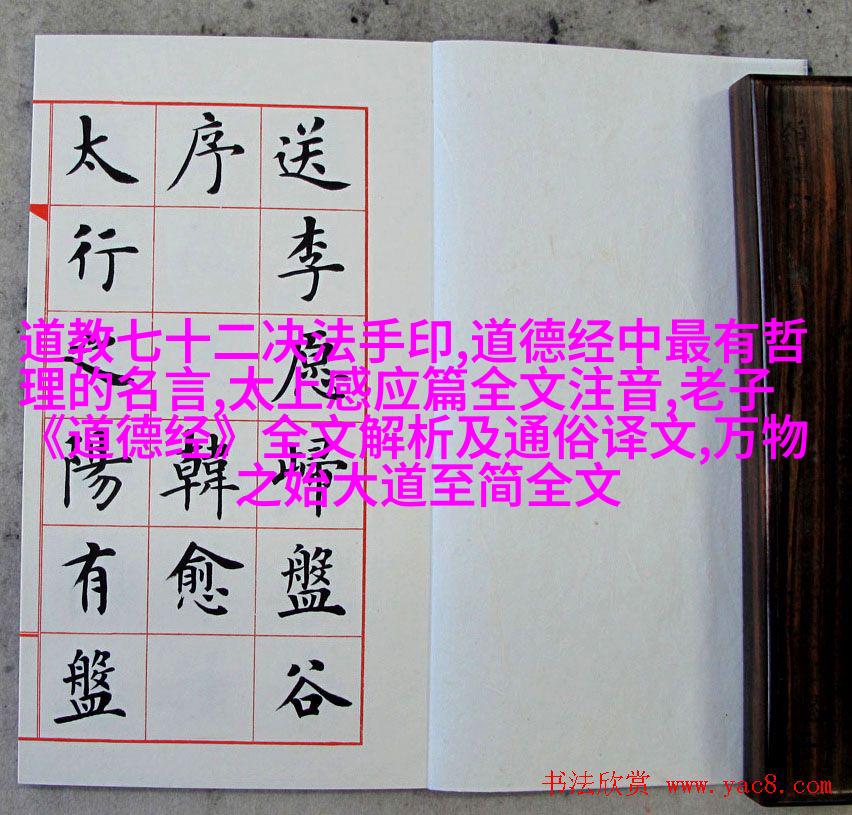 送李愿歸盤谷
序韓愈
太行之陽有盤
道教七十二决法手印,道德经中最有哲
理的名言,太上感应篇全文注音,老子
《道德经》全文解析及通俗译文,万物
之始大道至简全文
书法欣赏 www.yac8.com